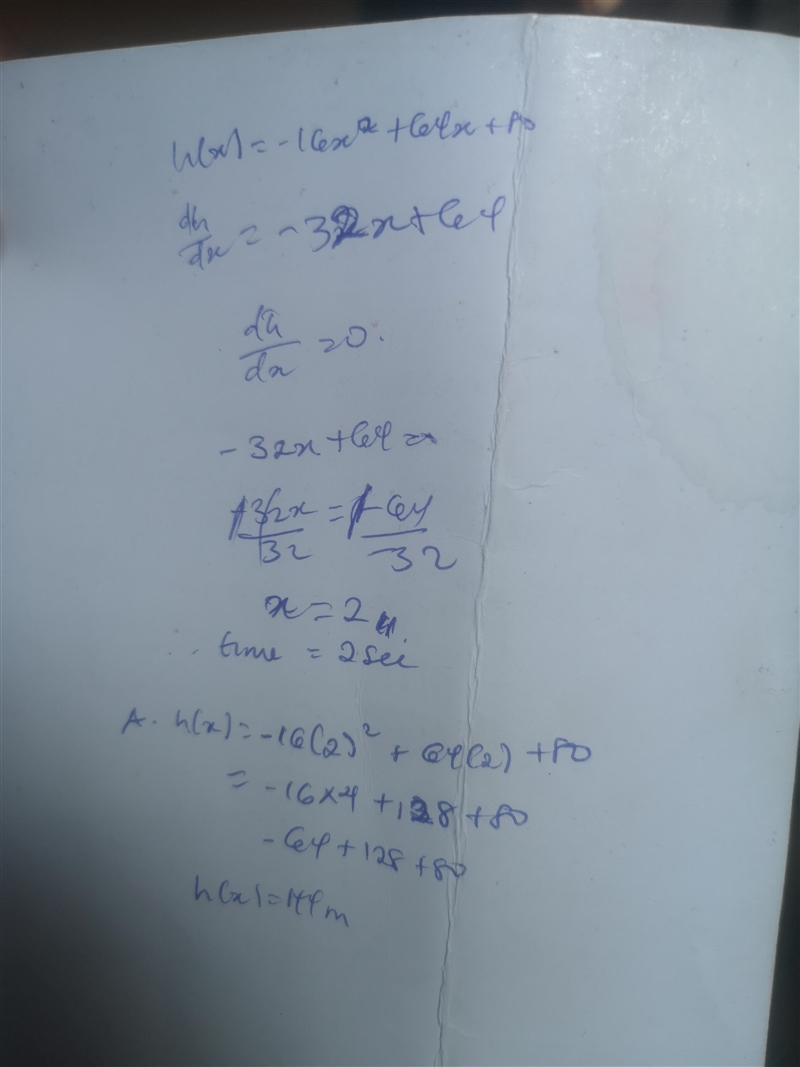 h(x) = -16x² + 64x + 80
dh/dx = -32x + 64
dh/dx = 0.
-32x + 64 = 0
-32x/-32 = -64/-32
x = 2
∴ time = 2sec
A. h(x) = -16(2)² + 64(2) + 80
= -16×4 + 128 + 80
-64 + 128 + 80
h(x) = 144m